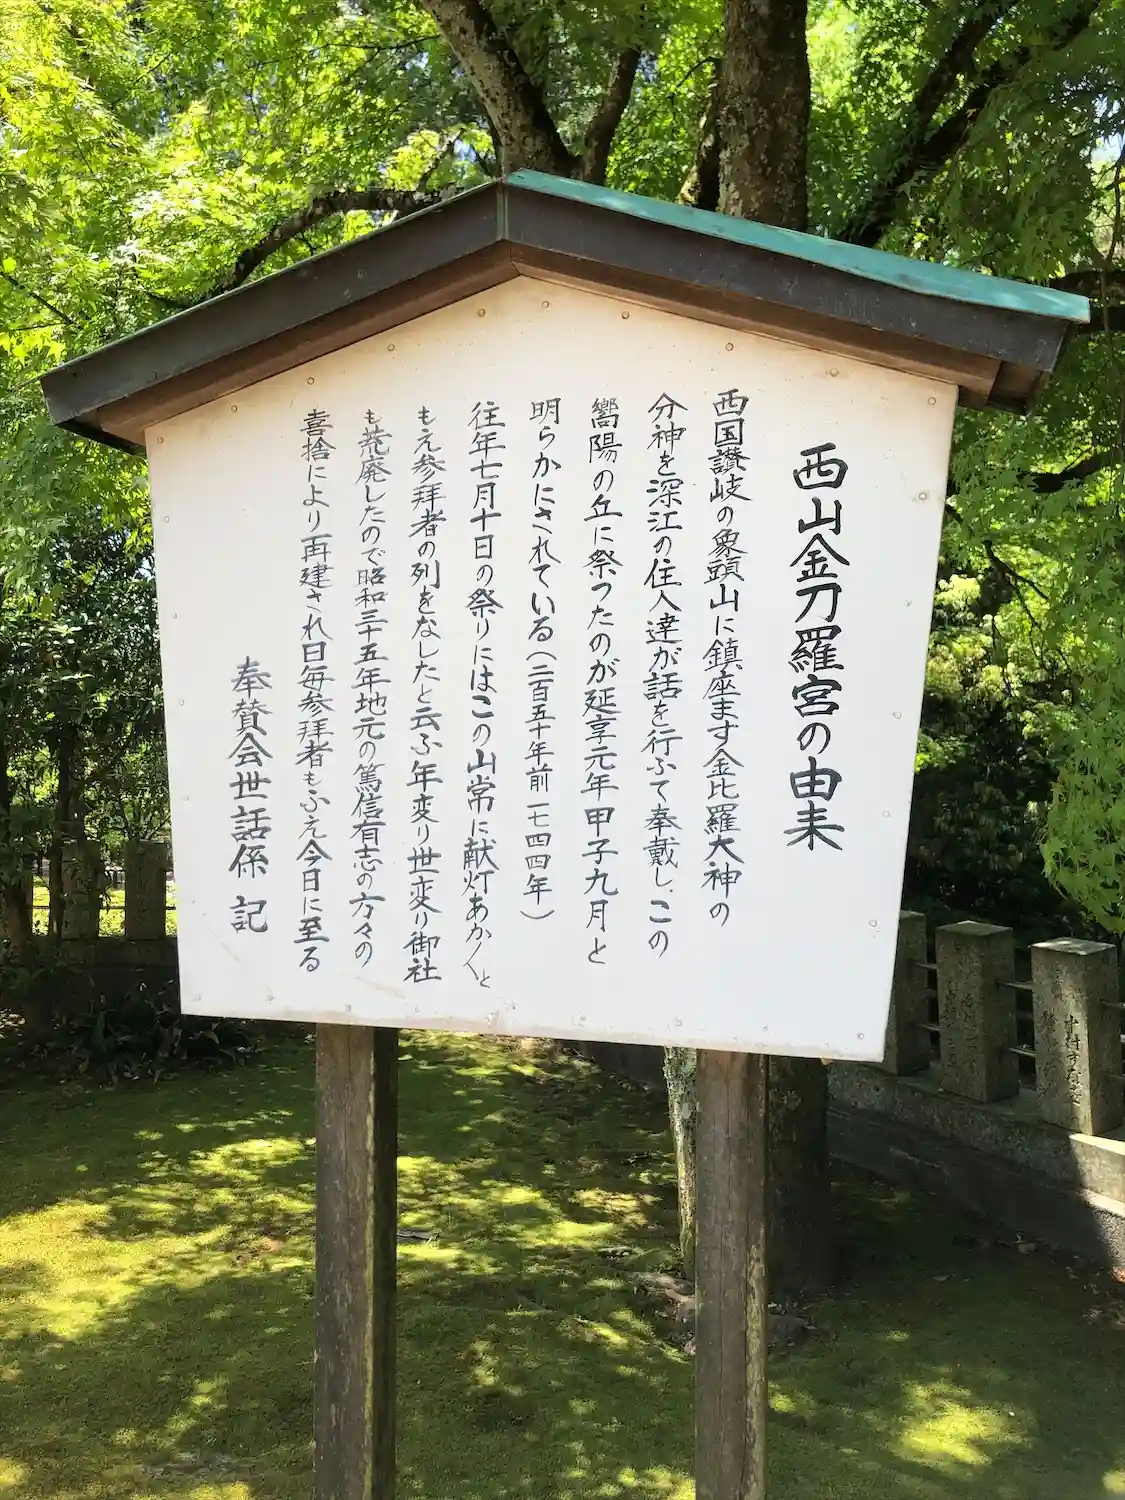 西山金刀羅宮の由来
西国讃岐の象頭山に鎮座ます金比羅大神の
分神を深江の住人達が話を行ふて奉戴し、この
嚮陽の丘に祭つたのが延享元年甲子九月と
明らかにされている(二百五十年前一七四四年)
往年七月十日の祭りにはこの山常に献灯あか〱と
もえ参拝者の列をなしたと云ふ年変り世変り御社
も荒廃したので昭和三十五年地元の篤信有志の方々の
喜捨により再建され日毎参拝者もふえ今日に至る
奉賛会世話係 記